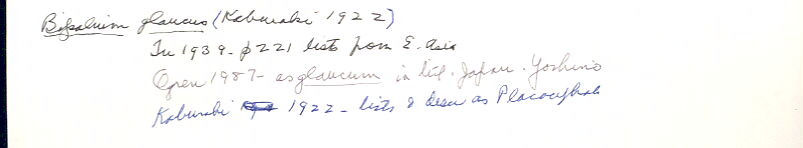 Bipalium glaucus (Kaburaki 1922)
In 1939 - p221 lists from E. Asia
Open 1987 - as glaucum in lit. Japan. Yoshino
Kaburaki 1922 - lists & desc as Placocephalus